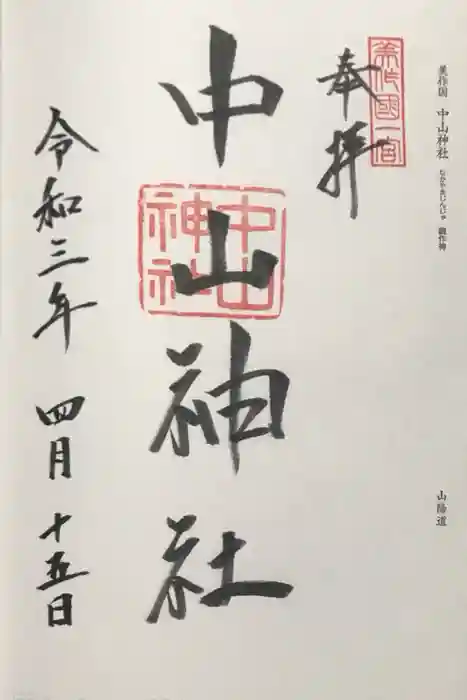 美作国 中山神社 なかやまじんじゃ 鏡作神
山陽道
美作國一宮
奉拝
中山神社
中山神社
令和三年 四月 十五日